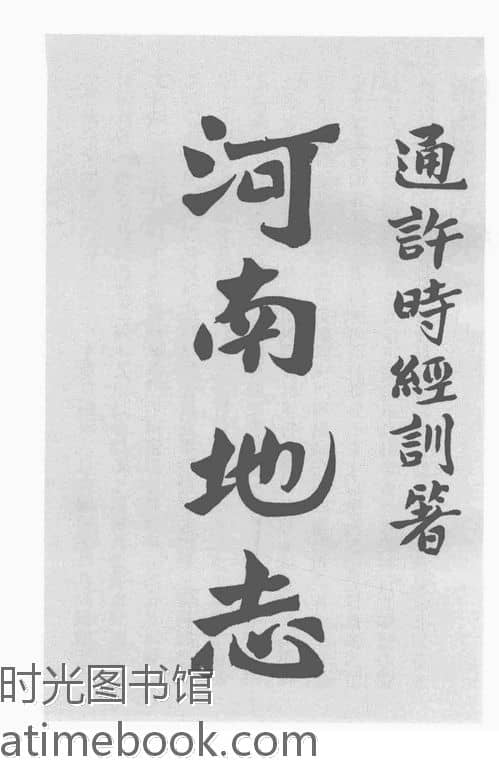 通許時經訓箸
河南地志
时光图书馆
atimebook.com